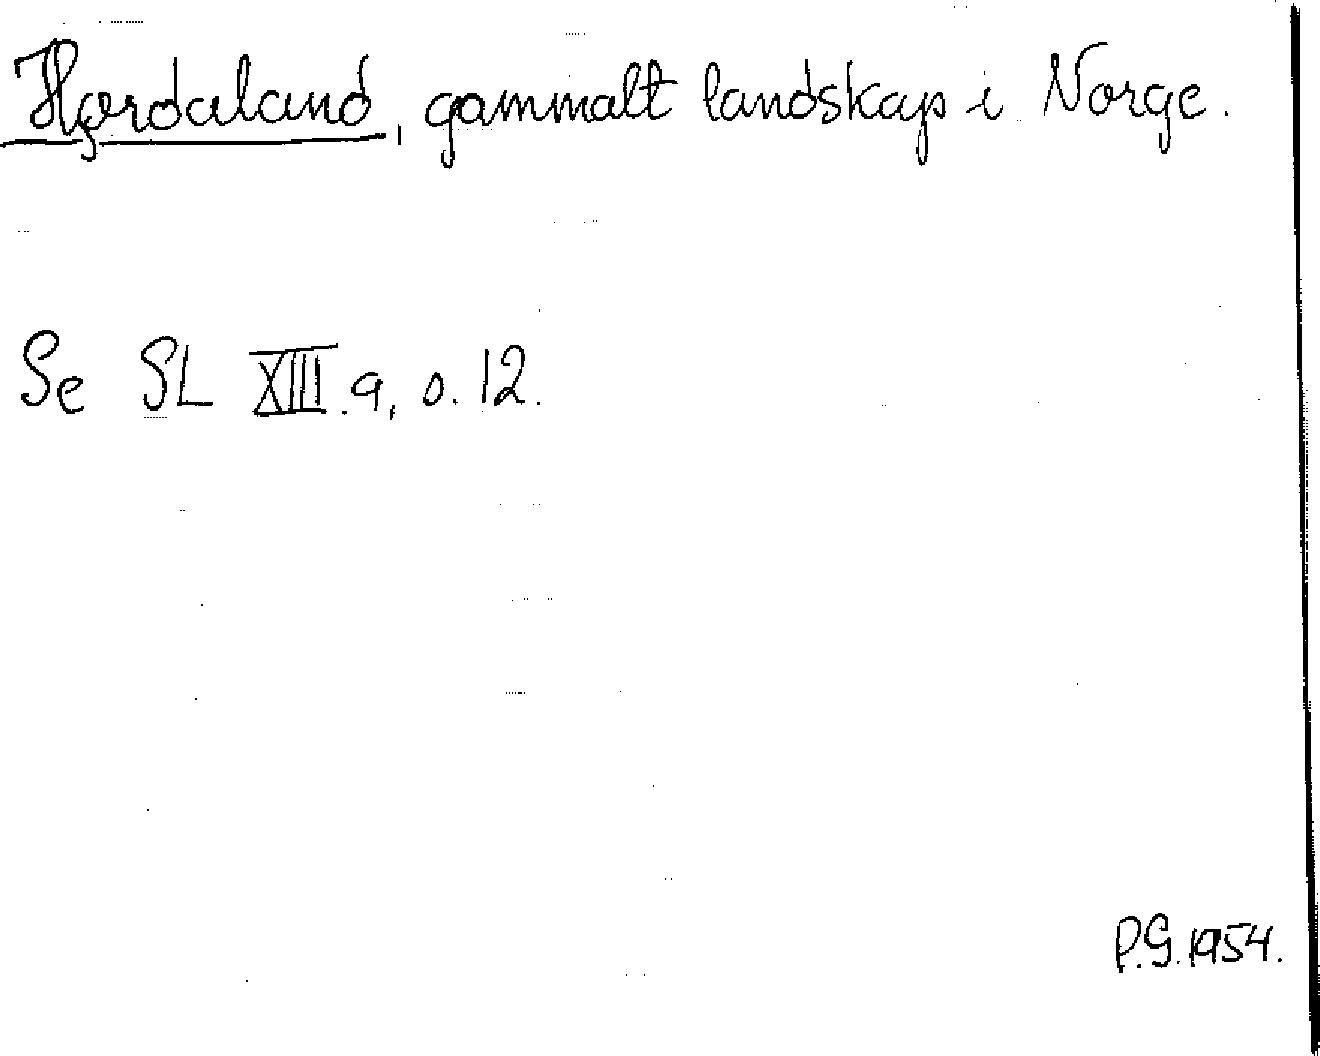 Hǫrdaland, gammalt landskap i Norge.
Se SL XIII.9, s. 12.
P.G. 1954.